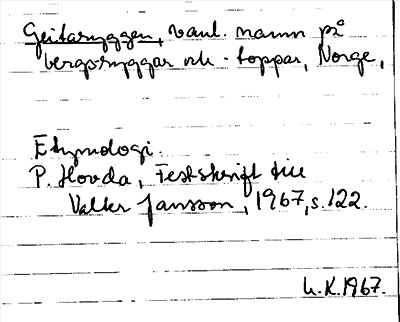 Geitaryggen, vanl. namn på
bergsryggar och -toppar, Norge,
Etymologi.
P. Hovda, Festskrift till
Valter Jansson, 1967, s. 122.
L.K. 1967.